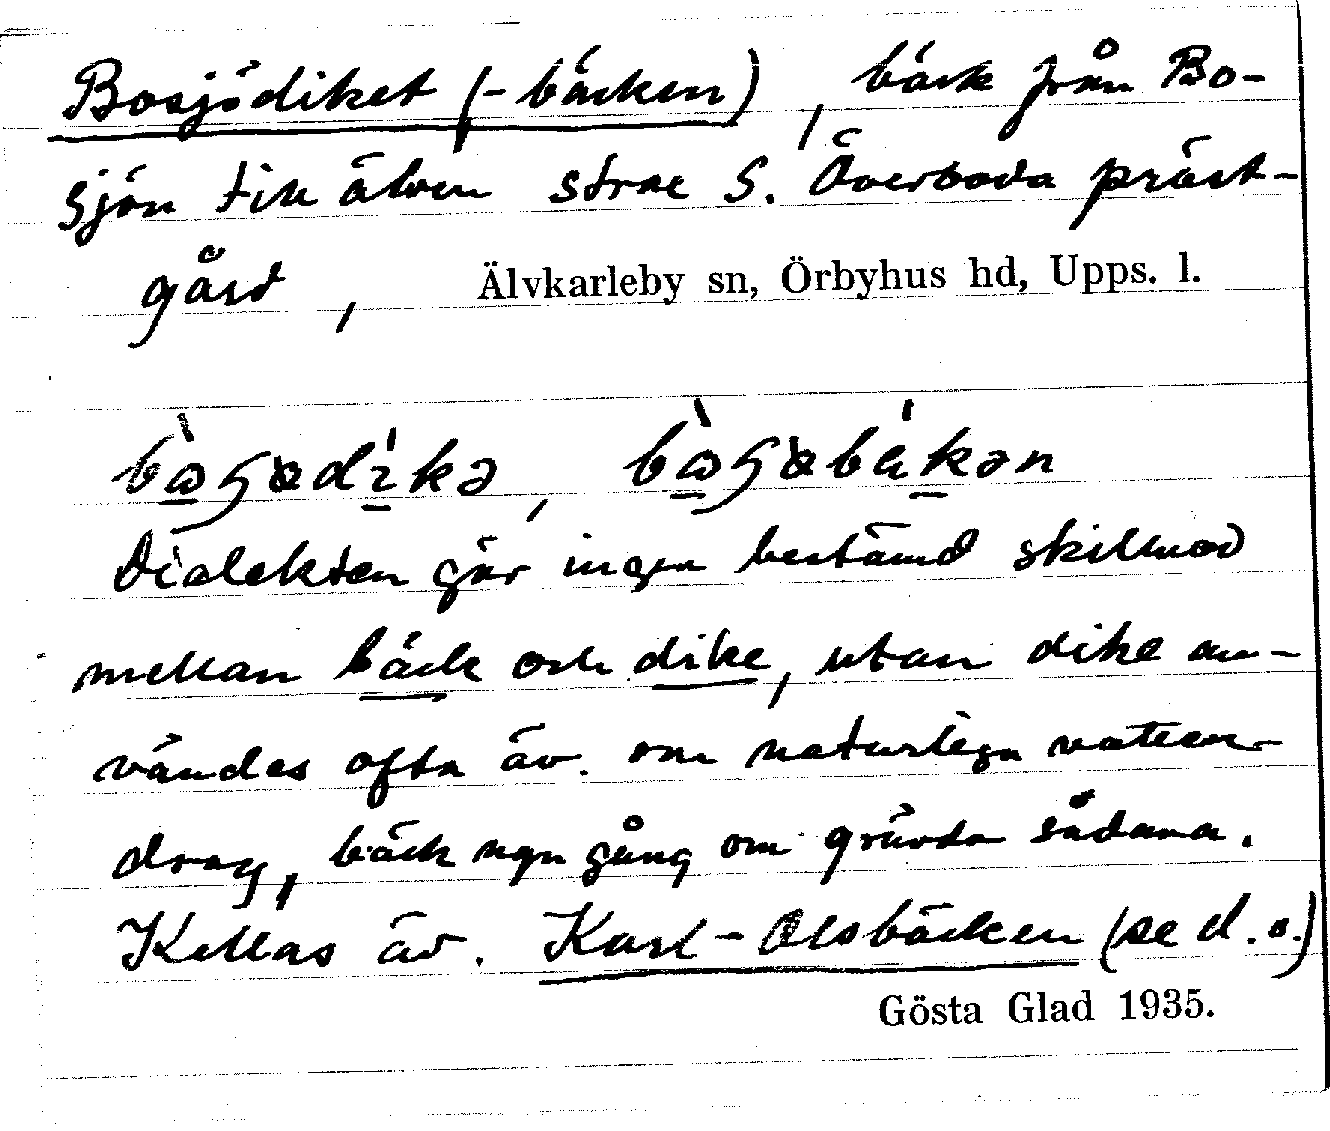 Bosjödiket (-bäcken), bäck från Bo-
sjön till älven strax S. Överboda präst-
gård, Älvkarleby sn, Örbyhus hd, Upps. l.
Dialekten gör ingen bestämd skillnad
mellan bäck och dike, utan dike an-
vändes ofta äv. om naturliga vatten-
drag, bäck ngn gång om grävda sådana.
Kallas äv. Karl-Olsbäcken (se d.o.)
Gösta Glad 1935.